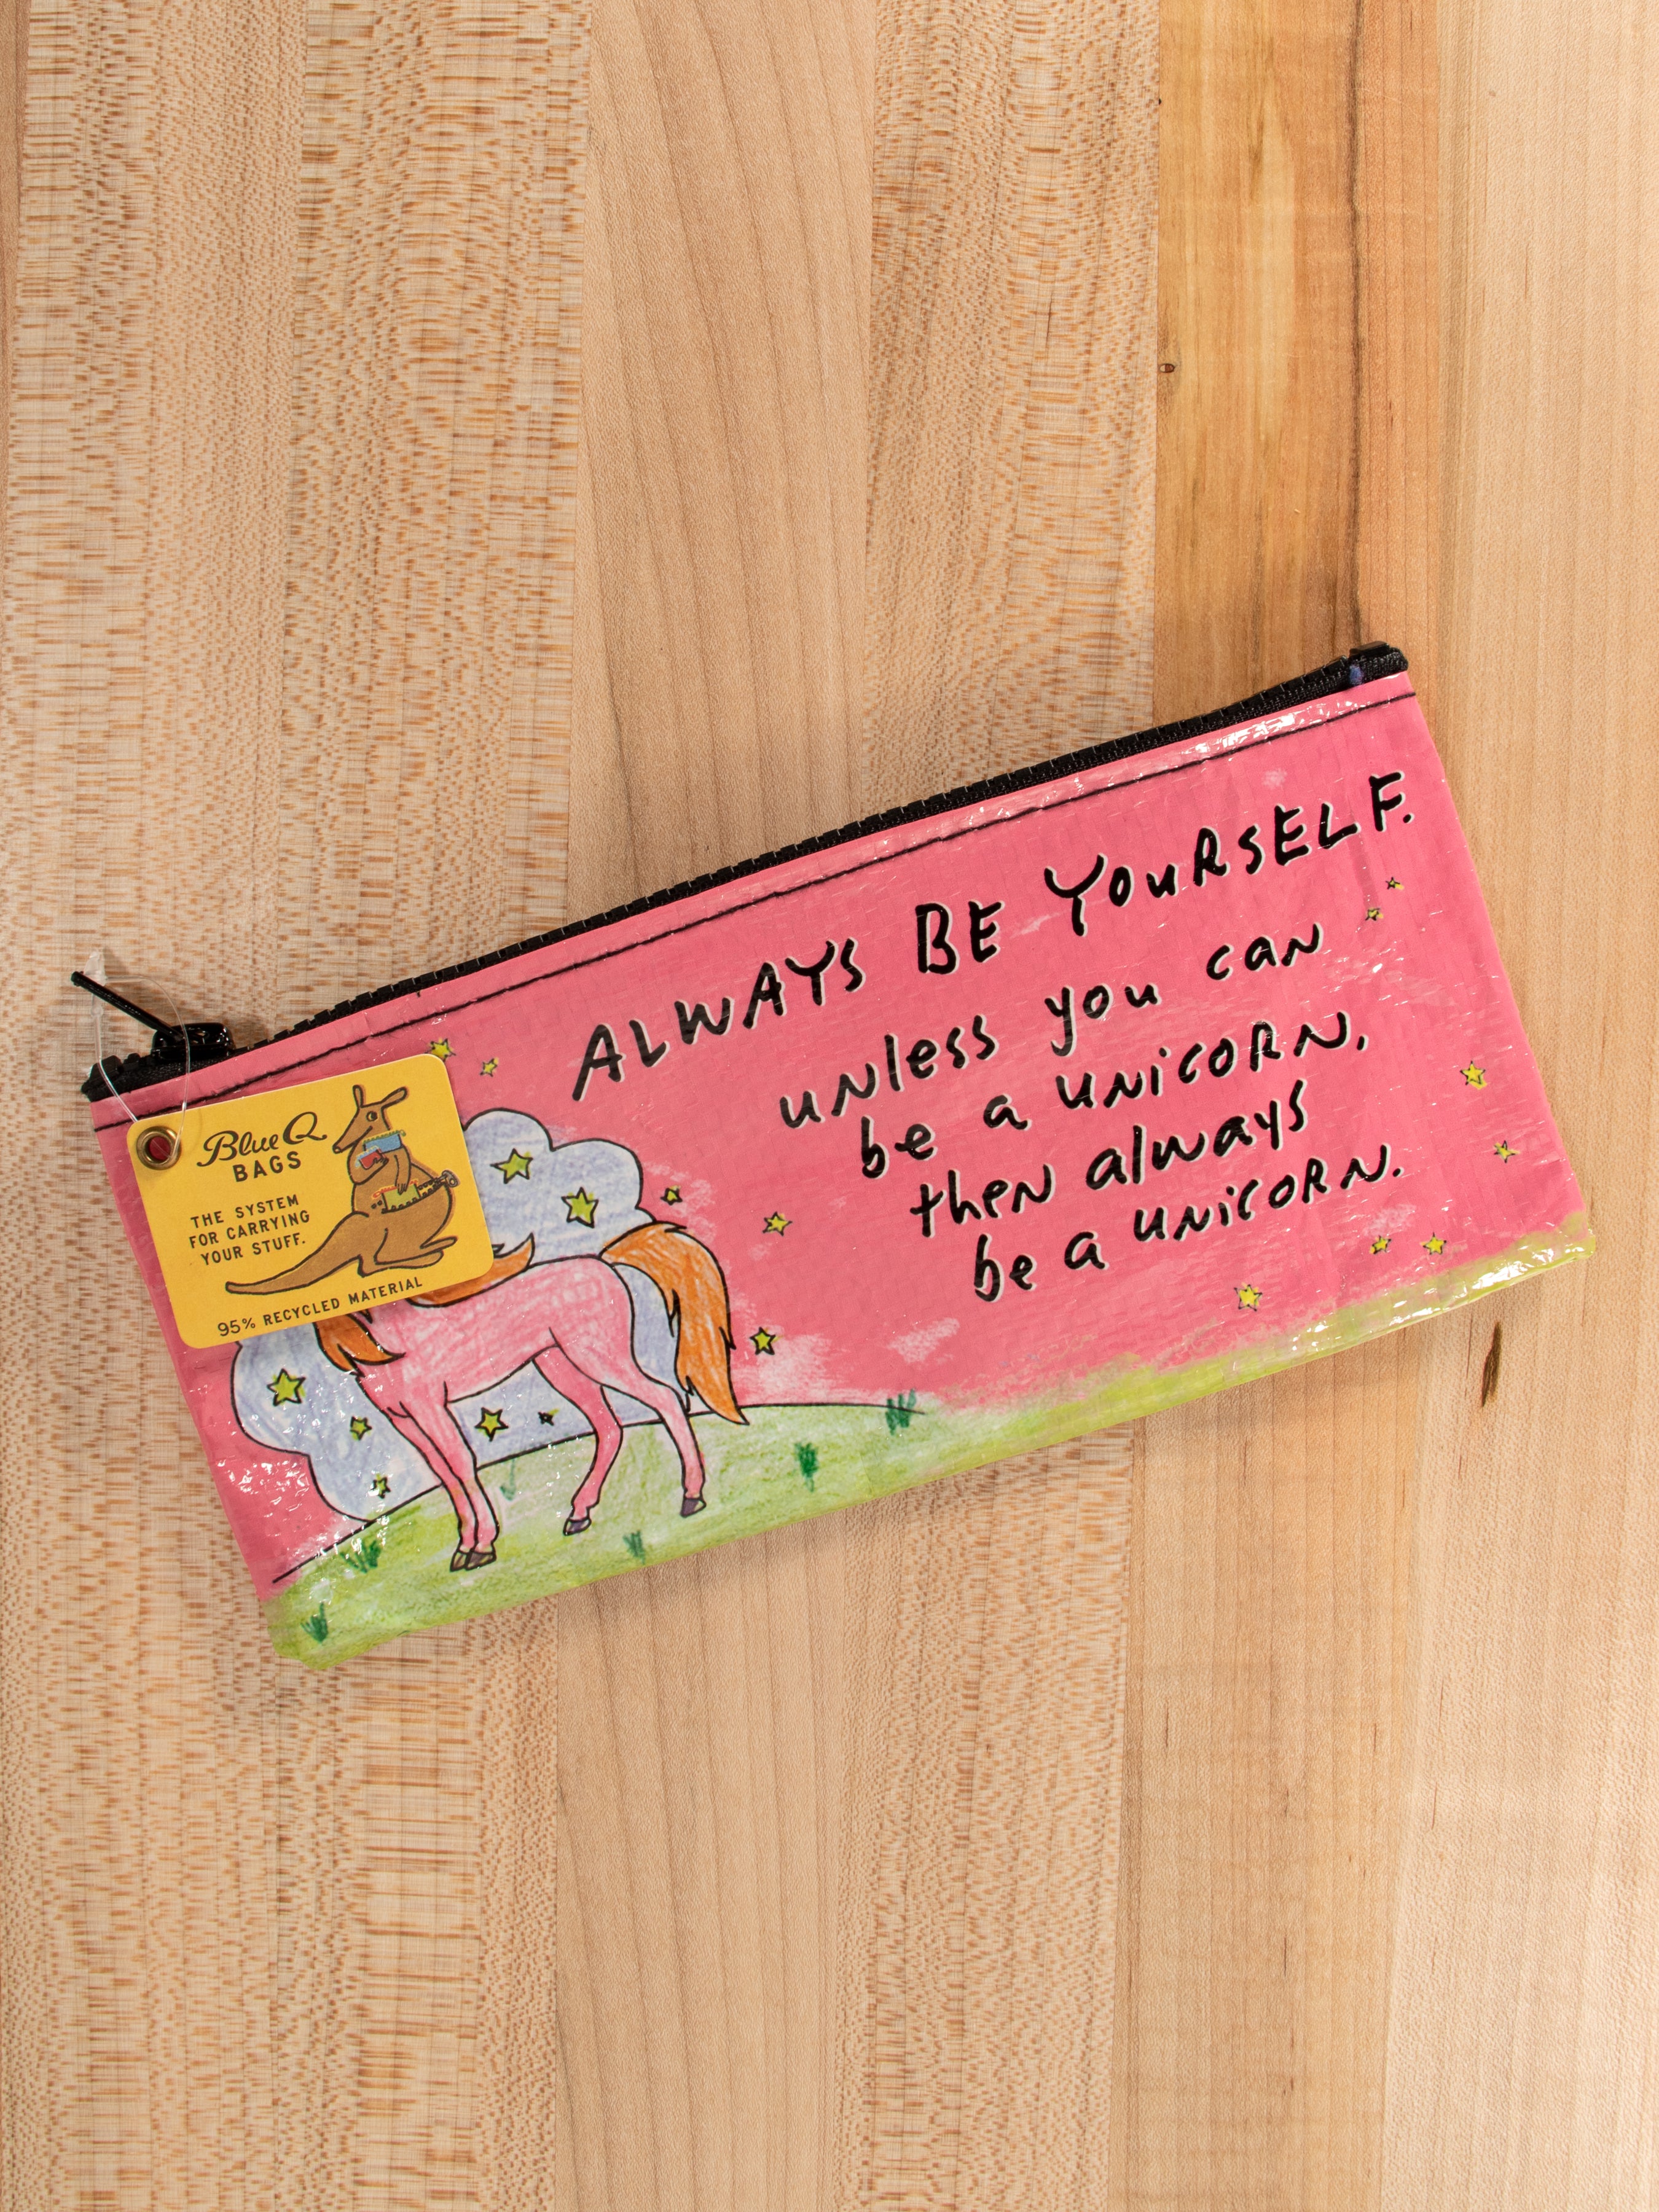 ALWAYS BE YOURSELF.
unless you can
be a unicorn,
then always
be a unicorn.
Blue Q
BAGS
THE SYSTEM
FOR CARRYING
YOUR STUFF.
95% RECYCLED MATERIAL